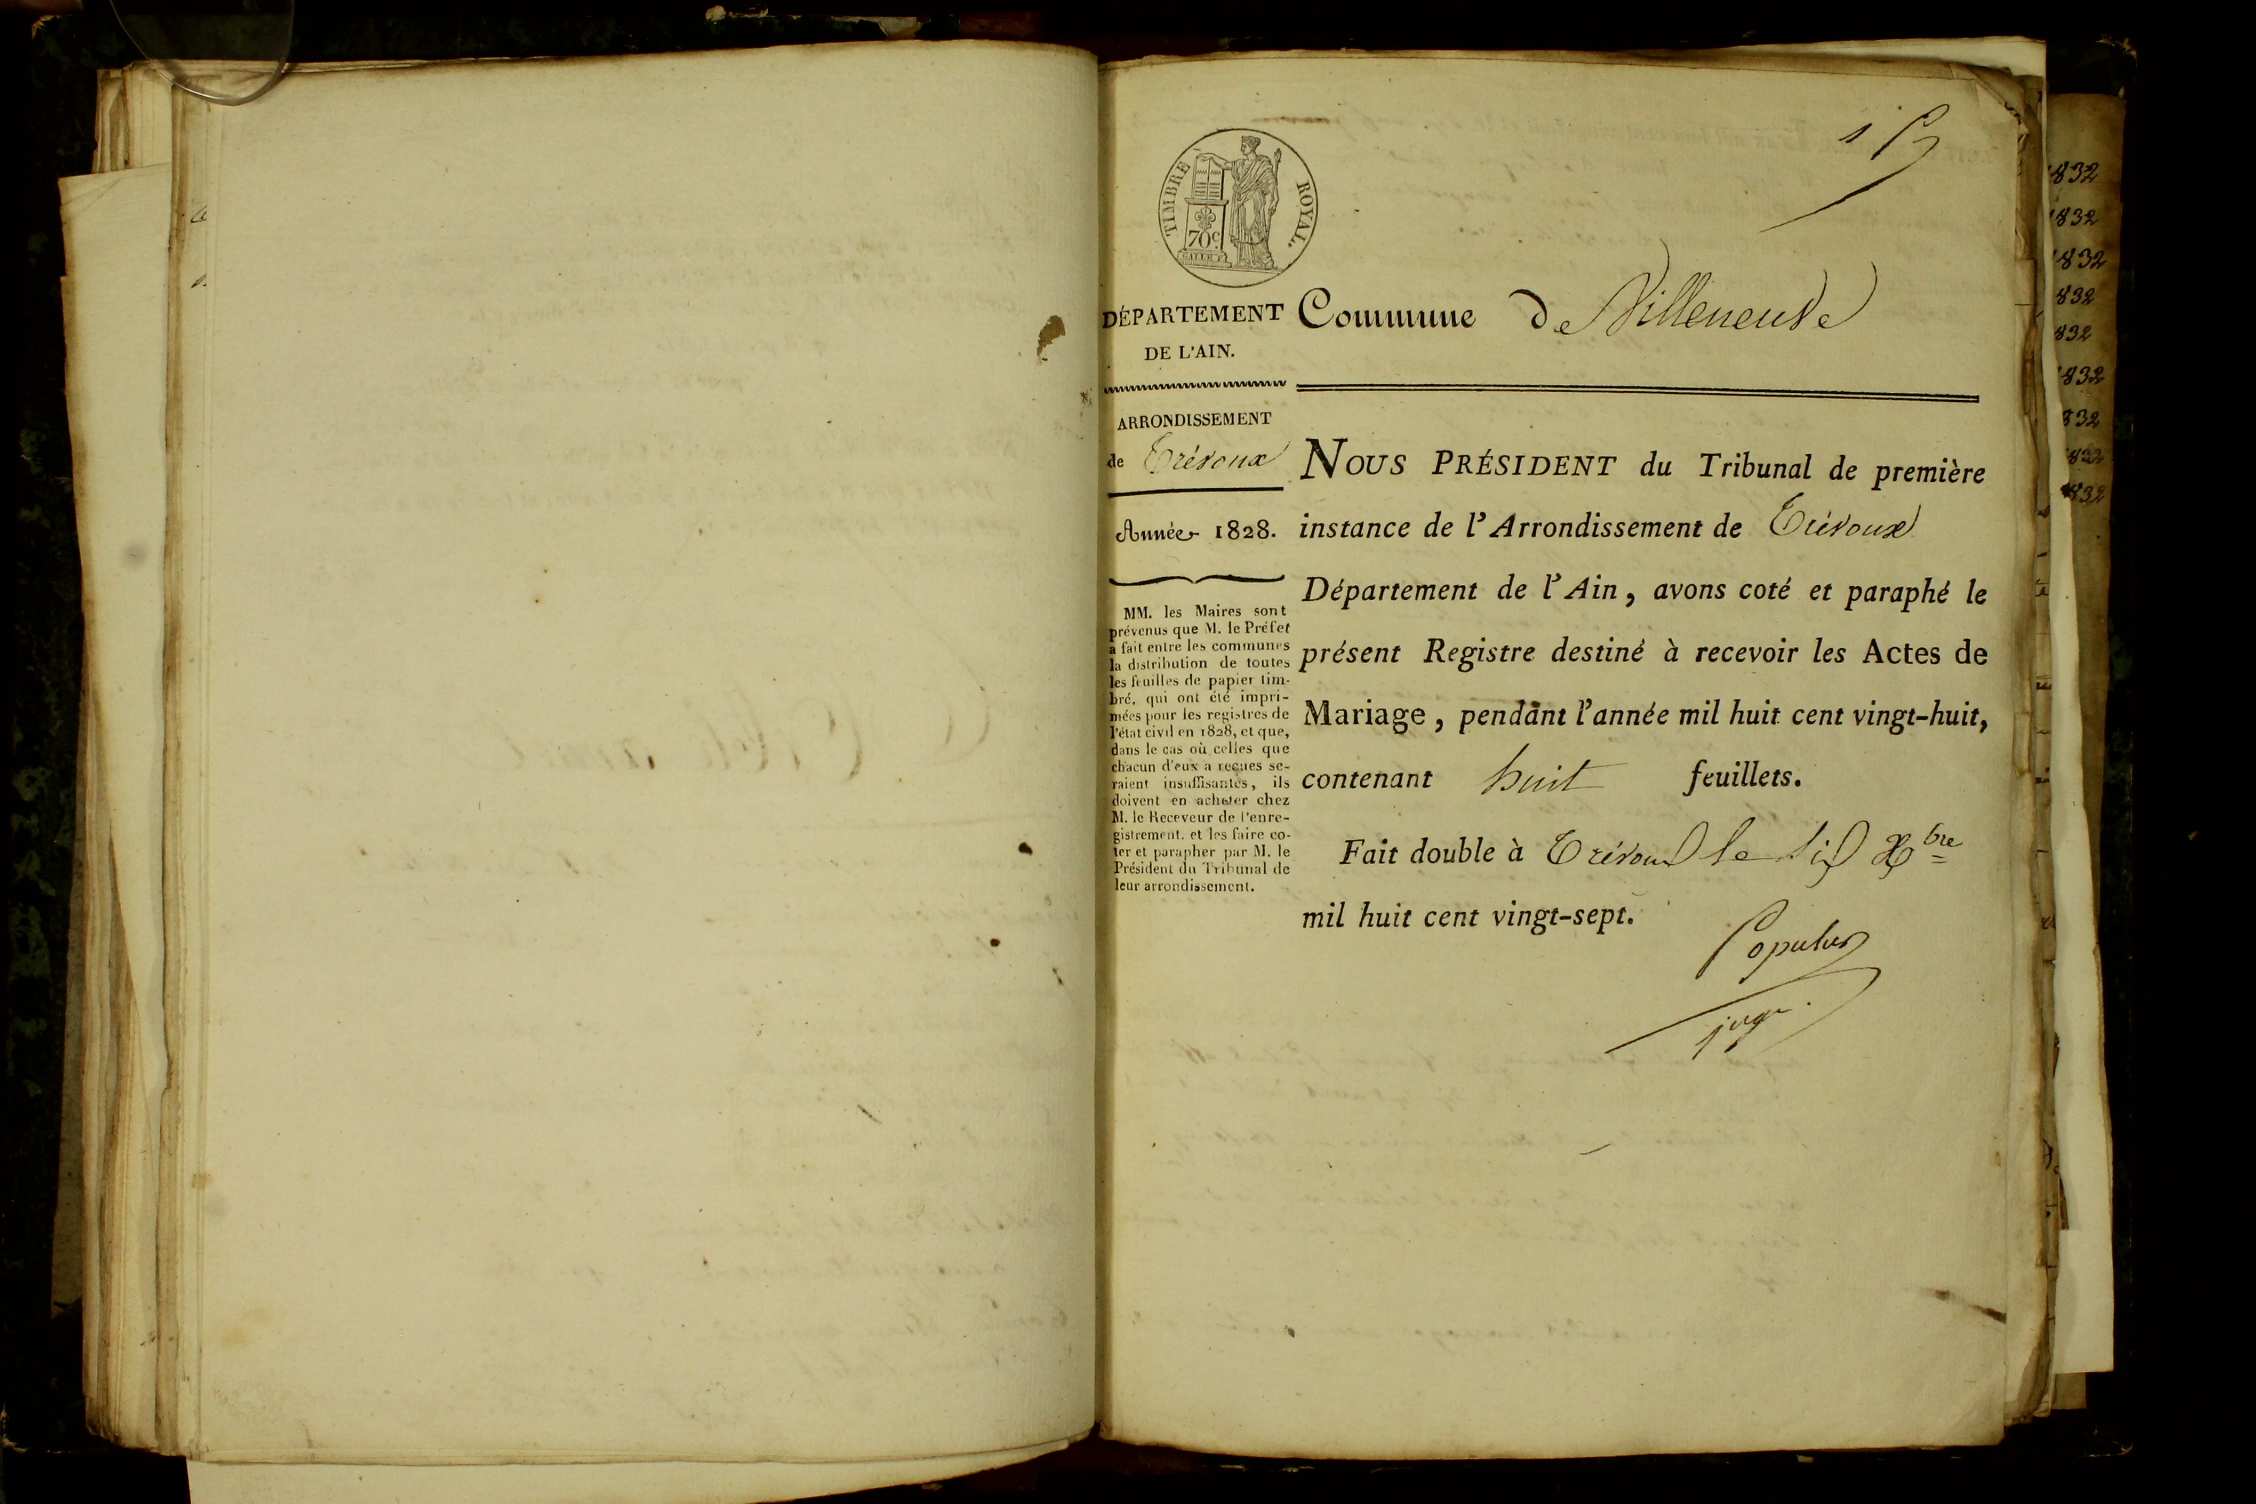 1
TIMBRE ROYAL.
70 c.
DÉPARTEMENT
DE L'AIN.
Commune De Villeneuve
ARRONDISSEMENT
de Trévoux
Année 1828.
MM. les Maires sont
prévenus que M. le Préfet
a fait entre les communes
la distribution de toutes
les feuilles de papier tim-
bré, qui ont été impri-
mées pour les registres de
l'état civil en 1828, et que,
dans le cas où celles que
chacun d'eux a reçues se-
raient insuffisantes, ils
doivent en acheter chez
M. le Receveur de l'enre-
gistrement, et les faire co-
ter et parapher par M. le
Président du Tribunal de
leur arrondissement.
NOUS PRÉSIDENT du Tribunal de première
instance de l'Arrondissement de Trévoux
Département de l'Ain, avons coté et paraphé le
présent Registre destiné à recevoir les Actes de
Mariage, pendant l'année mil huit cent vingt-huit,
contenant huit feuillets.
Fait double à Trévoux le six Xbre
mil huit cent vingt-sept.
Populus
juge.
1832
1832
1832
832
832
1832
832
832
1832